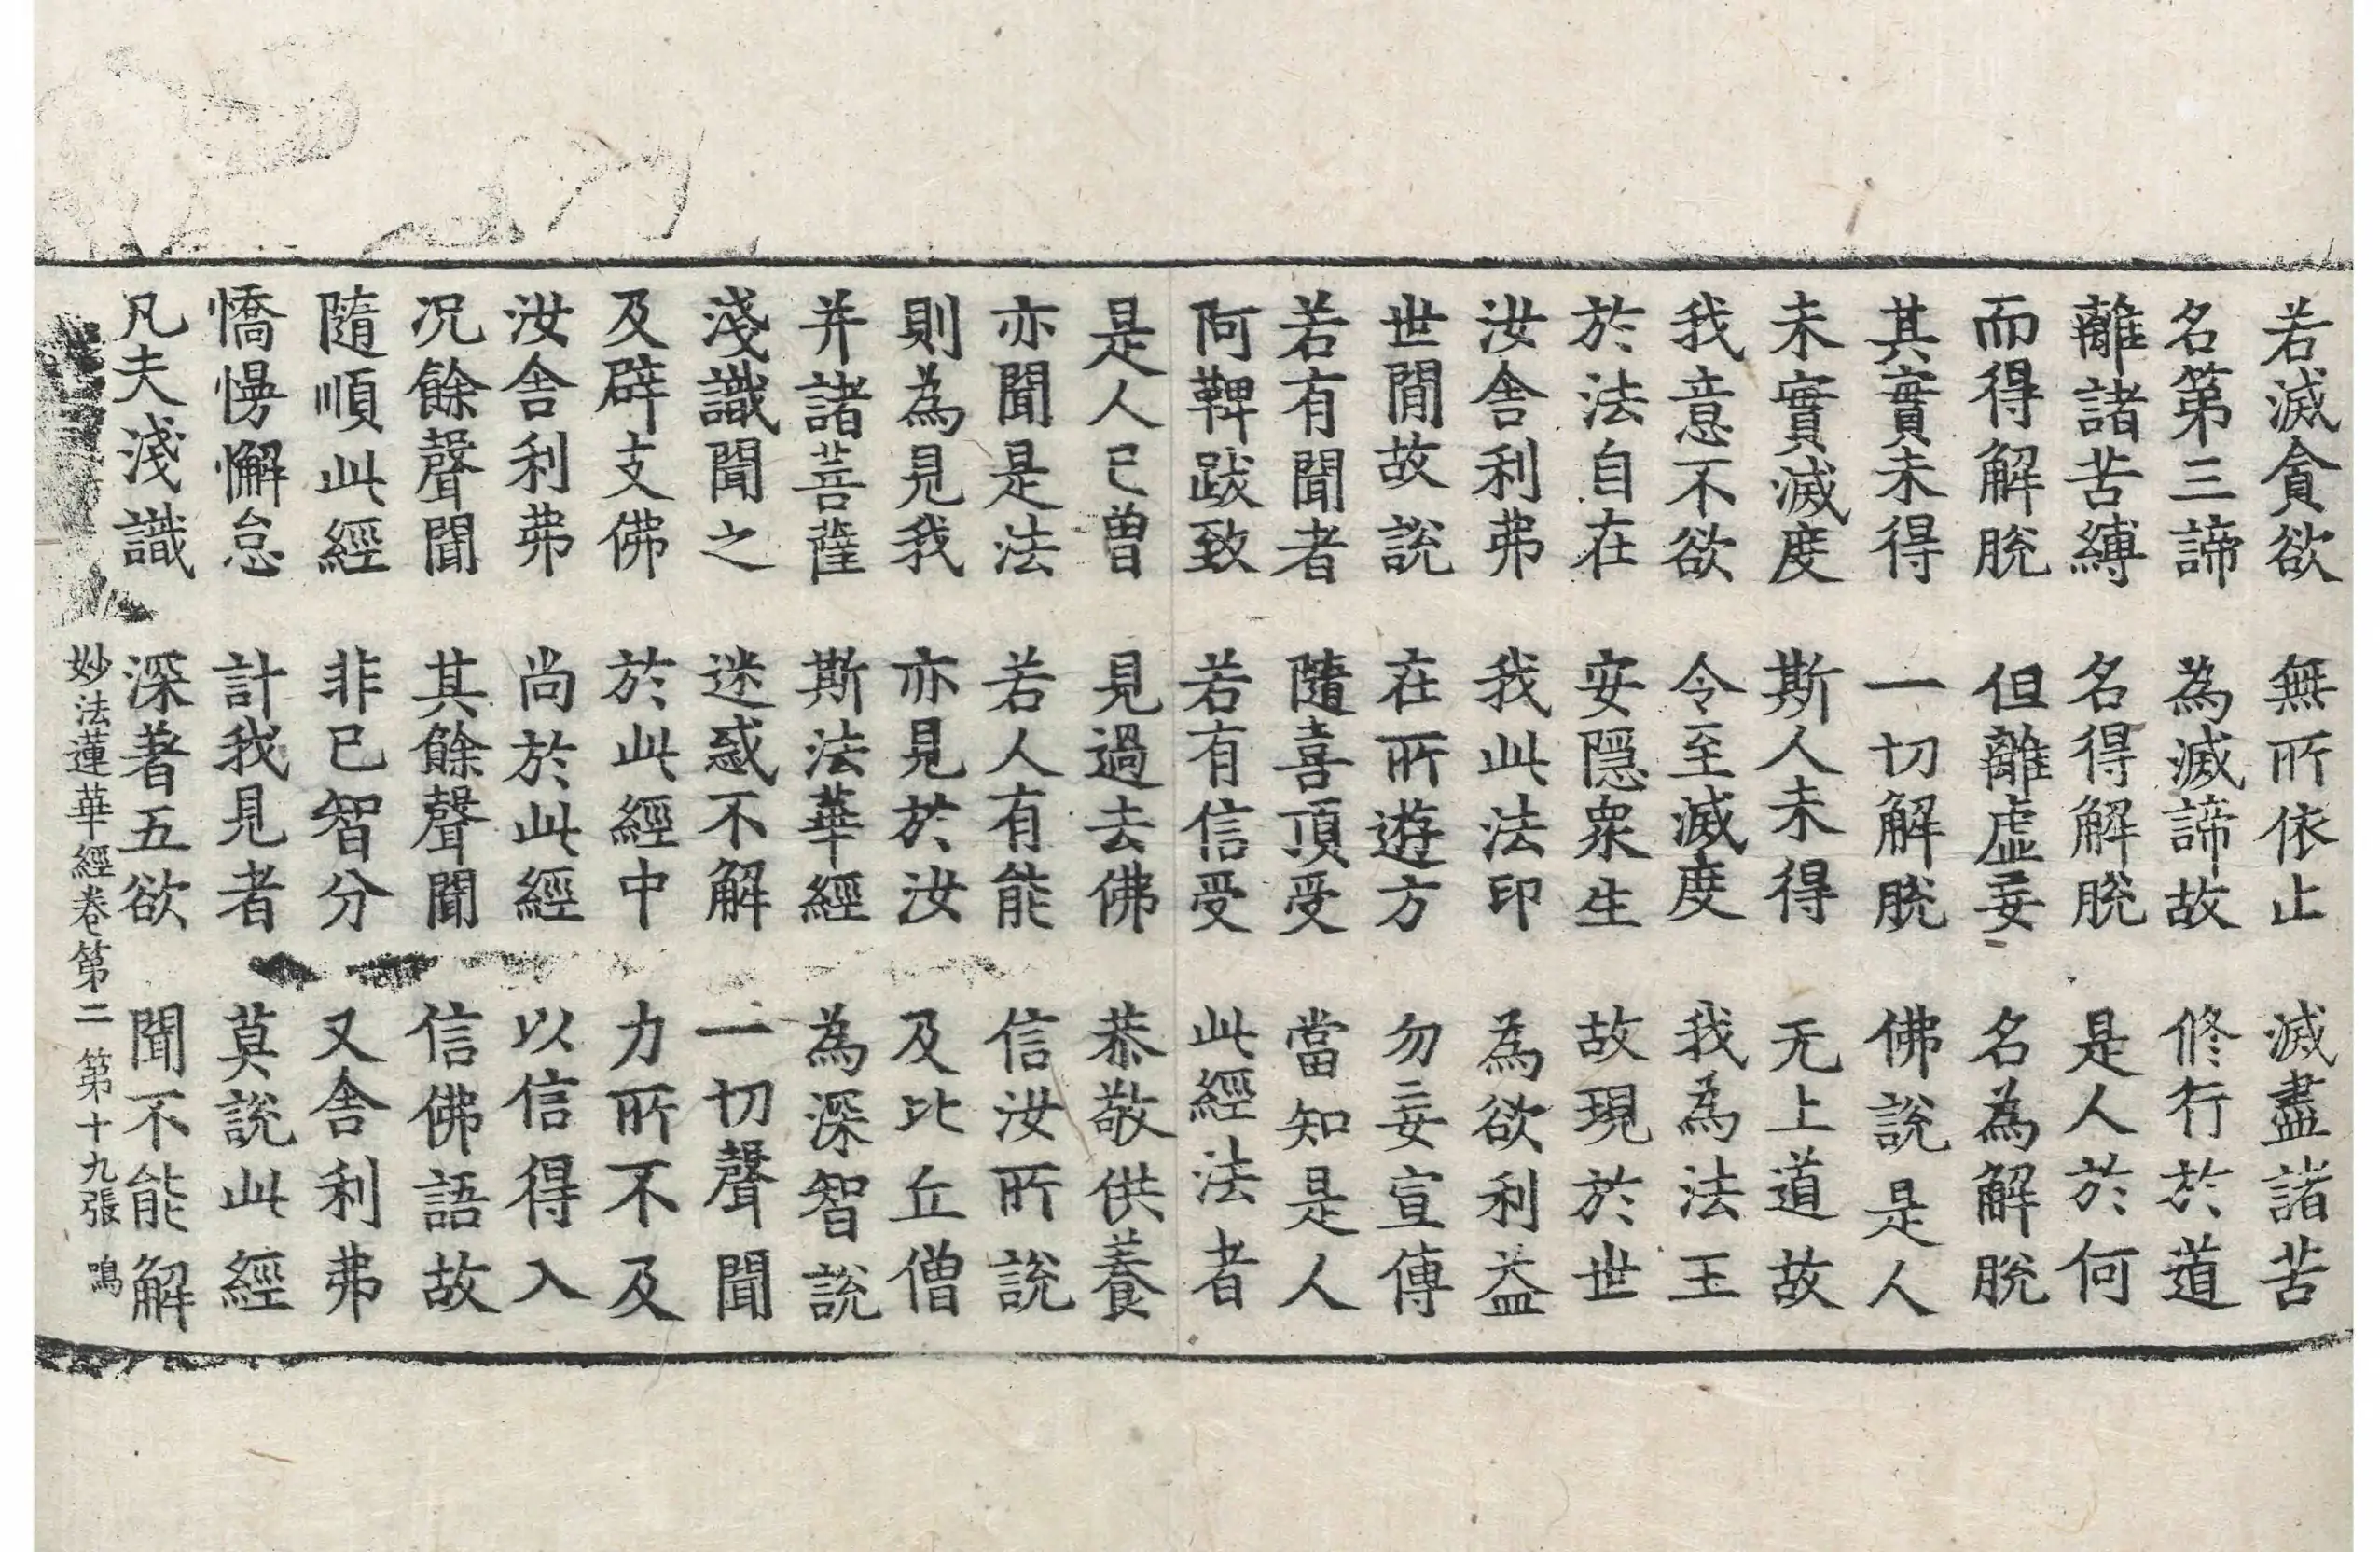 若滅貪欲 無所依止 滅盡諸苦
名第三諦 為滅諦故 修行於道
離諸苦縛 名得解脫 是人於何
而得解脫 但離虛妄 名為解脫
其實未得 一切解脫 佛說是人
未實滅度 斯人未得 无上道故
我意不欲 令至滅度 我為法王
於法自在 安隱眾生 故現於世
汝舍利弗 我此法印 為欲利益
世間故說 在所遊方 勿妄宣傳
若有聞者 隨喜頂受 當知是人
阿鞞跋致 若有信受 此經法者
是人已曾 見過去佛 恭敬供養
亦聞是法 若人有能 信汝所說
則為見我 亦見於汝 及比丘僧
并諸菩薩 斯法華經 為深智說
淺識聞之 迷惑不解 一切聲聞
及辟支佛 於此經中 力所不及
汝舍利弗 尚於此經 以信得入
況餘聲聞 其餘聲聞 信佛語故
隨順此經 非己智分 又舍利弗
憍慢懈怠 計我見者 莫說此經
凡夫淺識 深著五欲 聞不能解
妙法蓮華經卷第二 第十九張 鳴